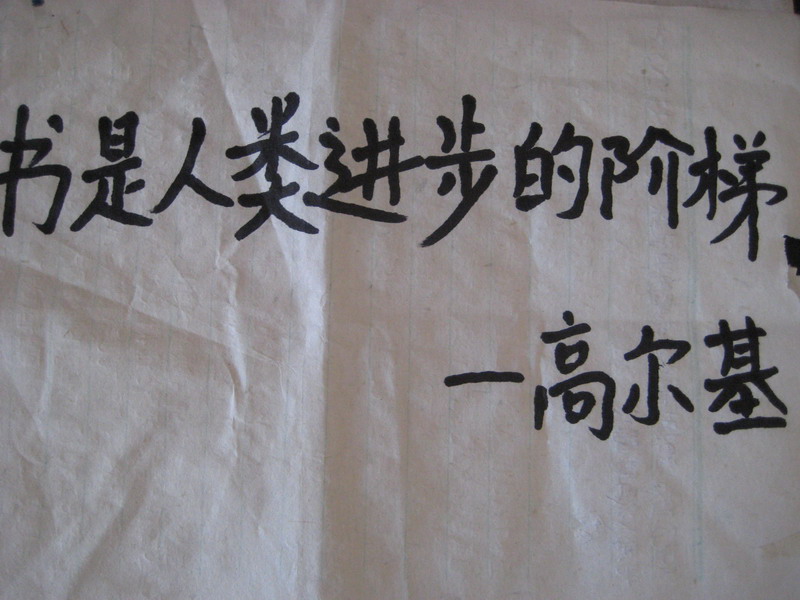 书是人类进步的阶梯
—高尔基